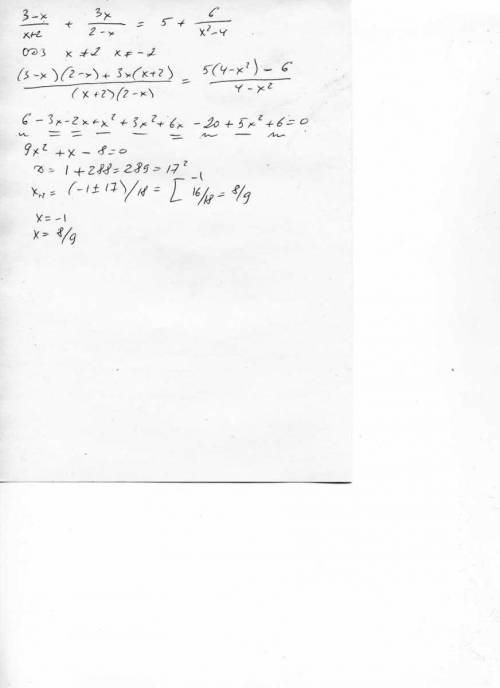 (3-x)/(x+2) + 3x/(2-x) = 5 + 6/(x²-4)
ОДЗ x ≠ 2 x ≠ -2
((3-x)(2-x)+3x(x+2))/((x+2)(2-x)) = (5(4-x²)-6)/(4-x²)
6-3x-2x+x²+3x²+6x-20+5x²+6=0
9x²+x-8=0
D=1+288=289=17²
x₁,₂=(-1±17)/18=[-1 16/18=8/9
x=-1
x=8/9